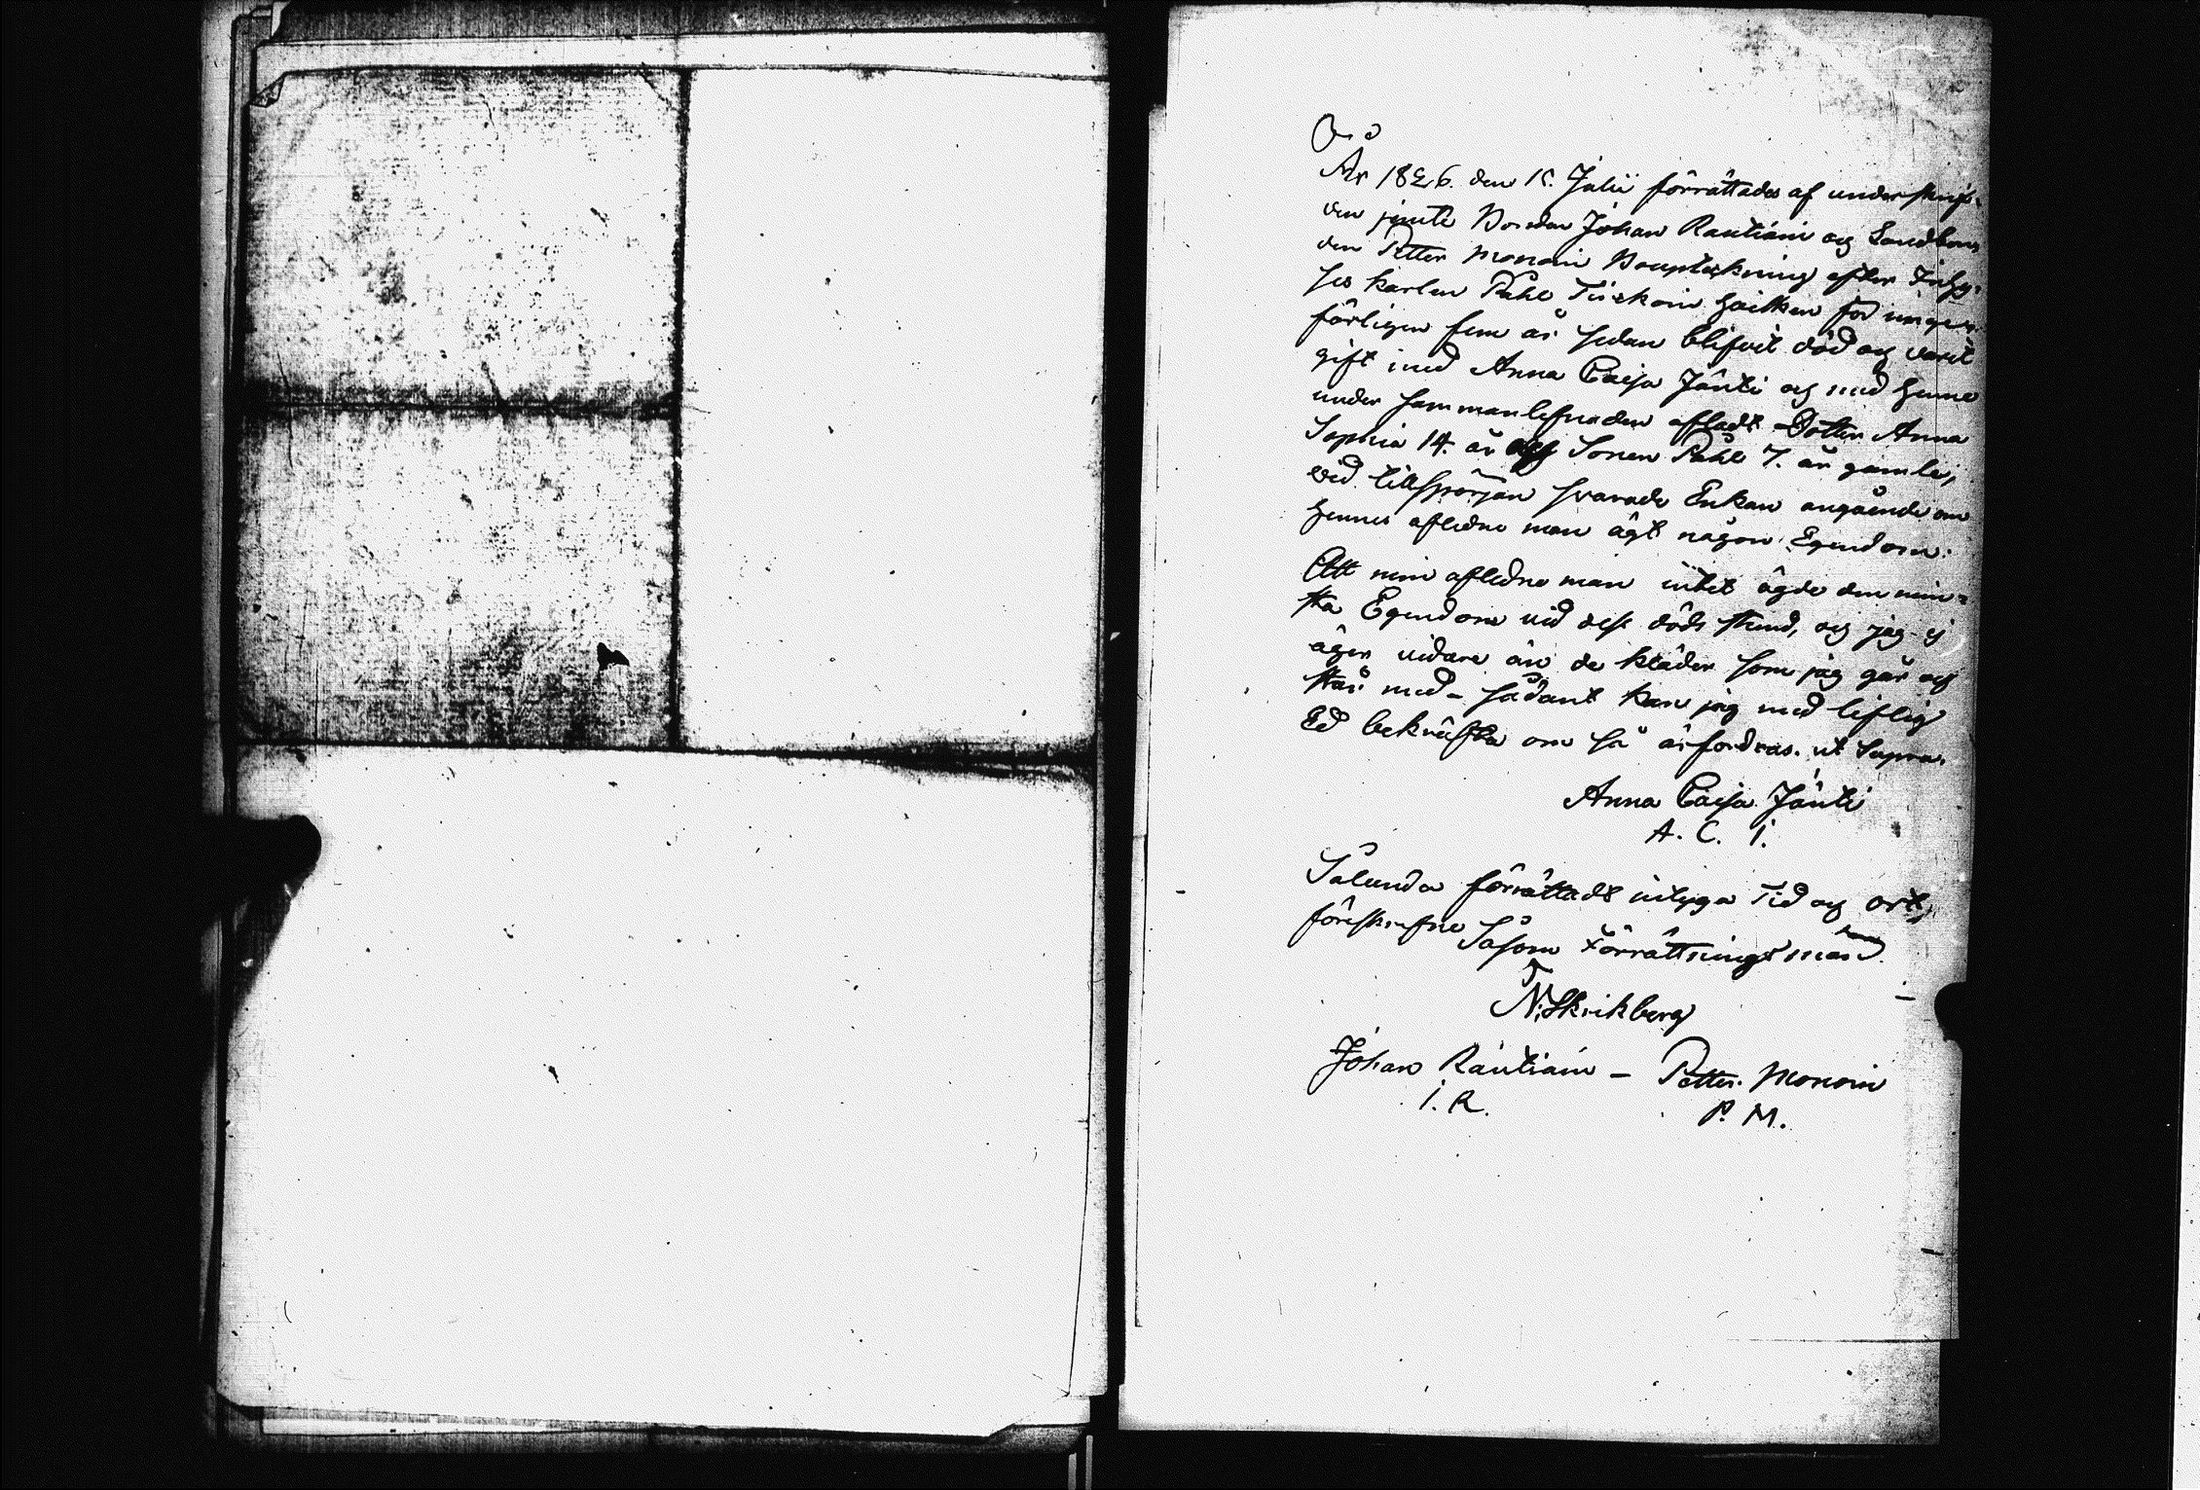 År 1826. den 15. Julii förrättades af underskrif-
den jemte Bonden Johan Rautiain och Landbon-
den Petter Monoin Bouptekning efter Inhy-
ses karlen Påhl Tirskoin hvilken för unge-
färligen fem år sedan blifvit död og varit
gift med Anna Caisa Jänti og med henne
under sammanlefnaden afladt Dotter Anna
Sophia 14. år og Sonen Påhl 7. år gamle,
vid tillspörjan svarade Enkan angående om
hennes afledne man ägt någon Egendom:
Att min afledne man intet ägde den min-
sta Egendom vid dess döds stund, og jag ej
äger vidare än de kläder som jag går og
står med – sådant kan jag med liflig
Ed bekräfta om så ärfordras. ut Supra.
Anna Caisa Jänti
A. C. I.
Sålunda förrättadt intyga Tid og ort,
föreskrefne
Såsom Förrättningsman
N. Skrikberg
Johan Rautiain – Petter Monoin
I. R. P. M.